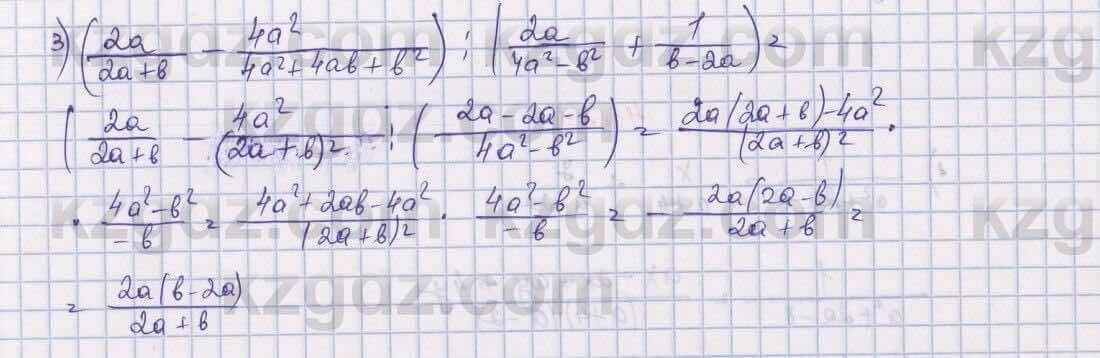 3) (2a/(2a+b) - 4a²/(4a²+4ab+b²)) : (2a/(4a²-b²) + 1/(b-2a)) =
(2a/(2a+b) - 4a²/(2a+b)² : ((2a-2a-b)/(4a²-b²)) = (2a(2a+b)-4a²)/(2a+b)² ·
· (4a²-b²)/(-b) = (4a²+2ab-4a²)/(2a+b)² · (4a²-b²)/(-b) = - (2a(2a-b))/(2a+b) =
= (2a(b-2a))/(2a+b)
kzgdz.com